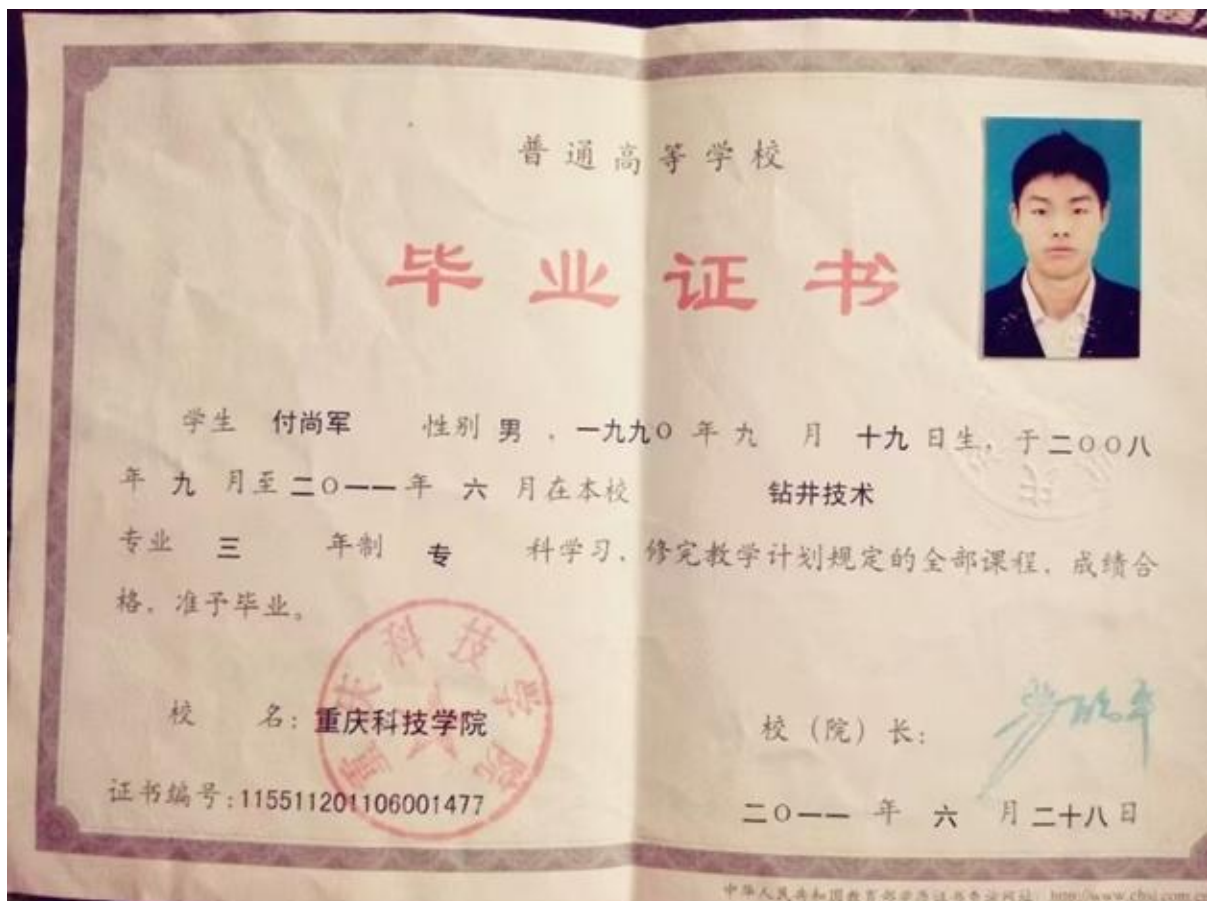 普通高等学校
毕业证书
学生 付尚军 性别 男，一九九〇年九月十九日生，于二〇〇八
年九月至二〇一一年六月在本校 钻井技术
专业 三 年制 专 科学习，修完教学计划规定的全部课程，成绩合
格，准予毕业。
重庆科技学院
校 名：重庆科技学院
校（院）长：
证书编号：115511201106001477
二〇一一年六月二十八日
中华人民共和国教育部学历证书查询网址：http://www.chsi.com.cn